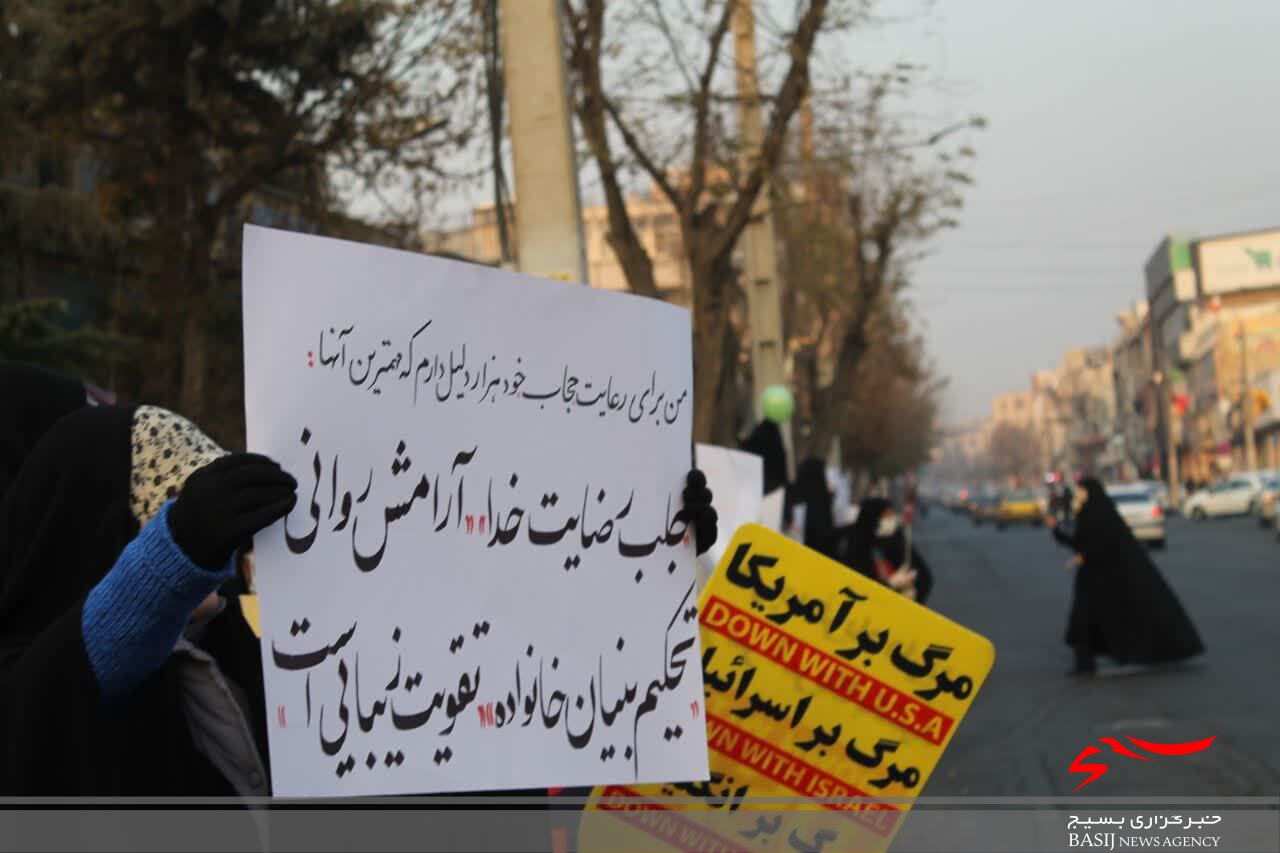 من برای رعایت حجاب خود هزار دلیل دارم که مهمترین آنها :
"جلب رضایت خدا" "آرامش روانی
"تحکیم بنیان خانواده" "تقویت زیبایی است"
مرگ بر آمریکا
DOWN WITH U.S.A
مرگ بر اسرائیل
DOWN WITH ISRAEL
مرگ بر
DOWN WITH
بسیج
خبرگزاری بسیج
BASIJ NEWS AGENCY